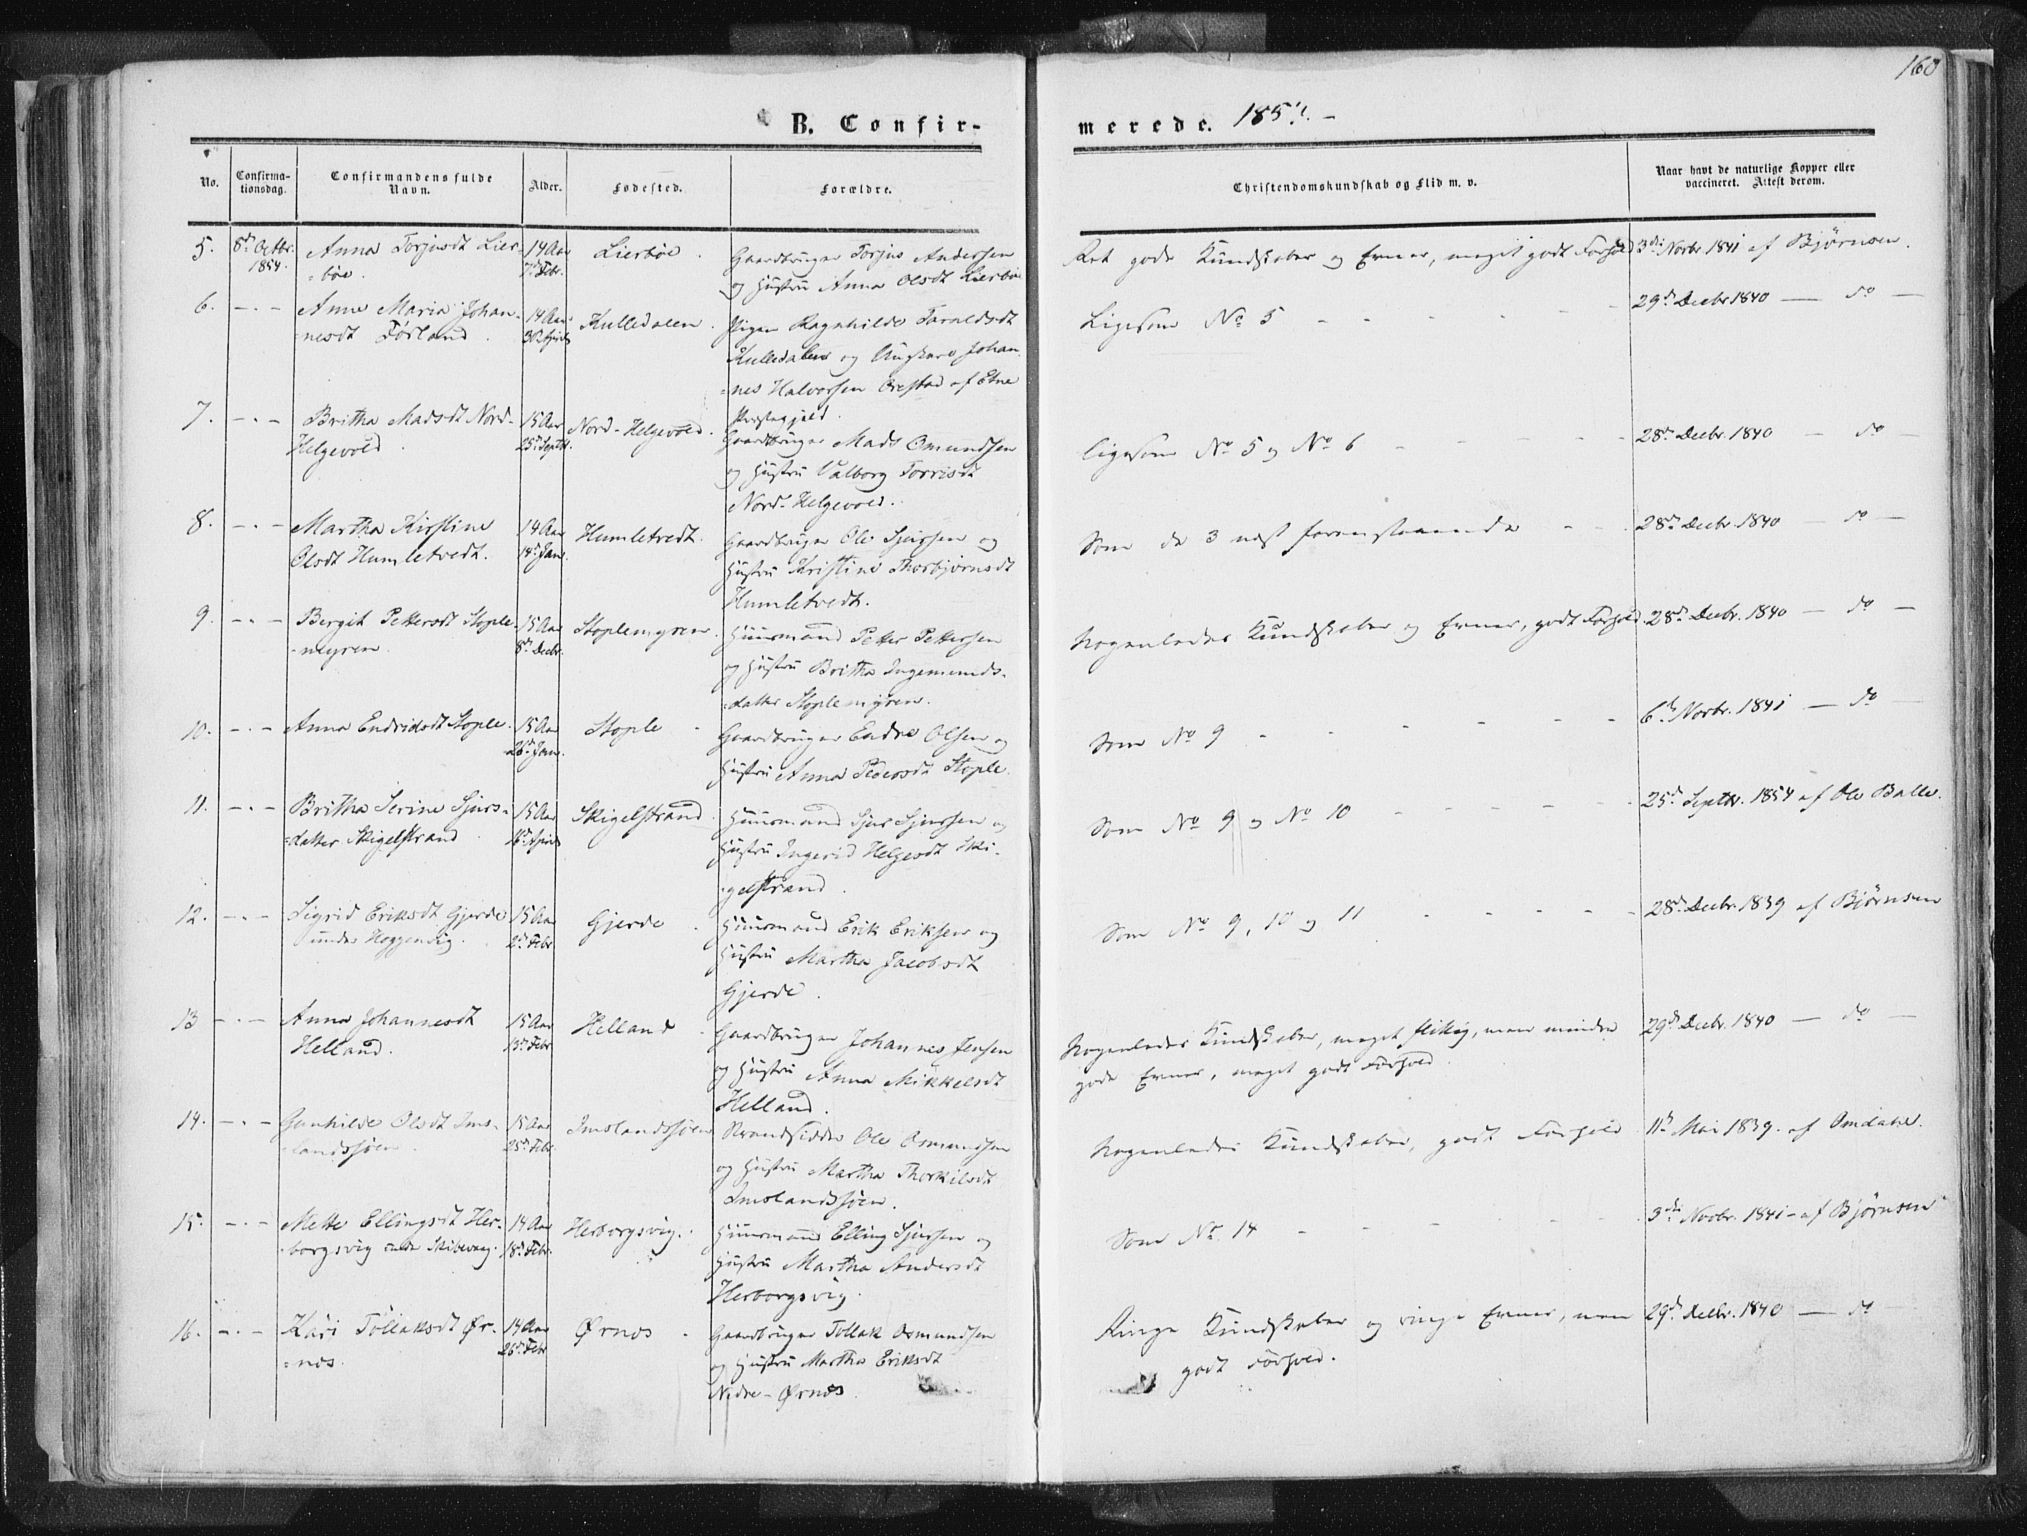 160
B. Confir-
merede. 1854.
No.
Confirma-
tionsdag.
Confirmandens fulde
Navn.
Alder.
Fødested.
Forældre.
Christendomskundskab og Flid m. v.
Naar havt de naturlige Kopper eller
vaccineret. Attest derom.
5. 8de Octbr. Anna Torjusdt Lier- 14 Aar Lierböe. Gaardbruger Torjus Andersen Ret gode Kundskaber og Evner, meget godt Forhold 3die Novbr 1841 af Bjørnsen.
1854. =böe. 7de Febr. og Hustru Anna Olsdt Lierböe
6. - . - Anne Maria Johan- 14 Aar Kulledalen. Pigen Ragnhilde Taraldsdt Ligesom No 5 29de Decbr 1840 — do —
=nesdt Førland. Kulledalen og Ungkarl Johan-
=nes Halvorsen Orestad af Etne
Præstegjeld.
7. - . - Britha Madsdt Nord- 15 Aar Nord-Helgevold. Gaardbruger Mads Omundsen Ligesom No 5 og No 6 28de Decbr. 1840 — do —
Helgevold. 25de Septbr. og Hustru Valborg Torrisdt
Nord-Helgevold.
8. - . - Martha Kirstine 14 Aar Humletvedt. Gaardbruger Ole Sjursen og Som de 3 næst forenstaaende 28de Decbr. 1840 — do —
Olsdt Humletvedt. 14de Jan. Hustru Kristine Thorbjørnsdt
Humletvedt.
9. - . - Bergit Pettersdt Stople- 15 Aar Stoplemyren. Huusmand Petter Pettersen Nogenledes Kundskaber og Evner, godt Forhold. 28de Decbr. 1840 — do —
-myren. 8de Decbr. og Hustru Britha Ingemunds-
=datter Stoplemyren.
10. - . - Anna Endridsdt Stople. 15 Aar Stople Gaardbruger Endre Olsen og Som No 9 6te Novbr. 1841 — do —
26de Jan. Hustru Anna Pedersdt Stople.
11. - . - Britha Serine Sjurs- 15 Aar Skigelstrand. Huusmand Sjur Sjursen og Som No 9 og No 10 25de Septbr. 1854 af Ole Balle.
=datter Skigelstrand Hustru Ingerid Helgesdt Ski-
-gelstrand.
12. - . - Sigrid Eriksdt Gjerde 15 Aar Gjerde. Huusmand Erik Eriksen og Som No 9, 10 og 11 28de Decbr. 1839 af Bjørnsen
under Hoggenvig. 2de Febr Hustru Martha Jacobsdt
Gjerde.
13 - . - Anna Johannesdt 15 Aar Helland. Gaardbruger Johannes Jensen Nogenledes Kundskaber, meget flittig, men mindre 29de Decbr. 1840 — do —
Helland. 13de Febr. og Hustru Anna Mikkelsdt gode Evner, meget godt Forhold.
Helland.
14. - . - Gunhilde Olsdt Ims- 15 Aar Imslandssjøen Strandsidder Ole Osmundsen Nogenledes Kundskaber, godt Forhold 11te Mai 1839. af Omdahl.
-landssjøen. 25de Febr. og Hustru Martha Thorkilsdt
Imslandssjøen.
15. - . - Mette Ellingsdt Her- 14 Aar Herborgsvig. Huusmand Elling Sjursen og Som No. 14 3die Novbr. 1841 - af Bjørnsen
-borgsvig 18de Febr. Hustru Martha Andersdt
Herborgsvig.
16. - . - Kari Tollaksdt Ør- 14 Aar Ørnes. Gaardbruger Tollak Osmundsen Ringe Kundskaber og ringe Evner, men 29de Decbr. 1840 — do
=nes. 26de Febr og Hustru Martha Eriksdt godt Forhold.
Nedre-Ørnes.